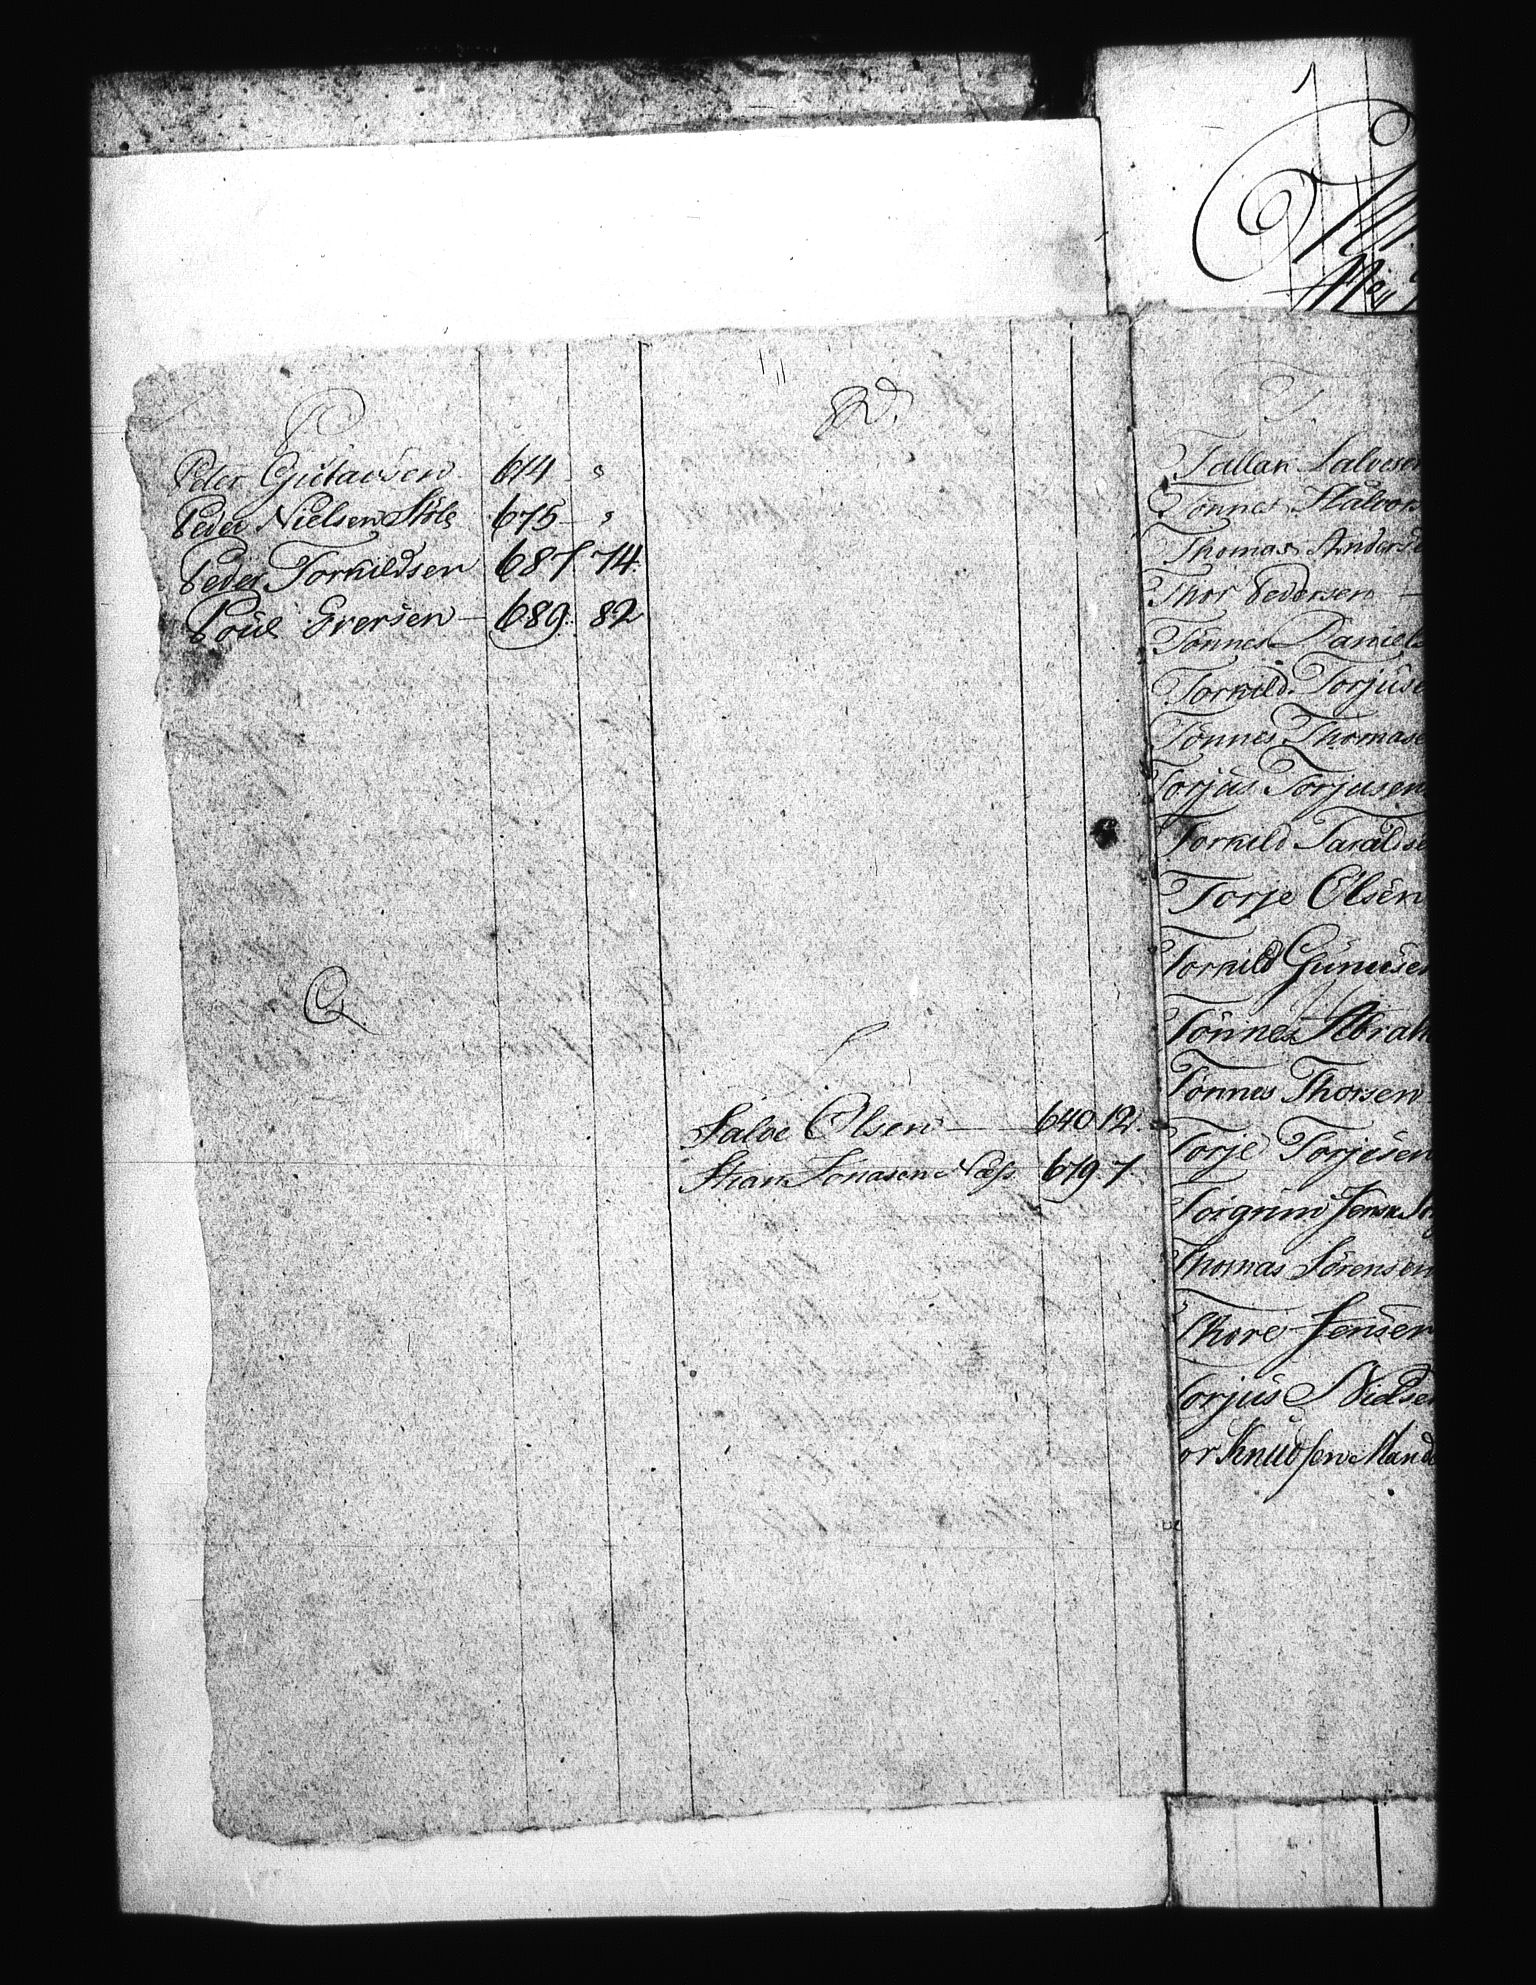 P
Peter Gustavsen 614 "
Peder Nielsen Støle 675 — "
Peder Torkildsen 687 74.
Poul Eversen — 689. 82
Q
R.
S
Salve Olsen — 640 12.
Stian Jonasen Næss 679. 7.
T.
Tallak Salvesen
Tönnes Halvors
Thomas Anders
Thor Pedersen —
Tönnes Daniels
Torkild Torjuse
Tönnes Thomase
Torjus Torjusen
Torkild Taraldse
Torje Olsen
Torkild Gunuse
Tönnes Abrah
Tönnes Thorsen
Torje Torjesen
Torgrim Jensen
Thomas Sörensen
Thore Jensen
Torjus Nielsen
or Knudsen Mand